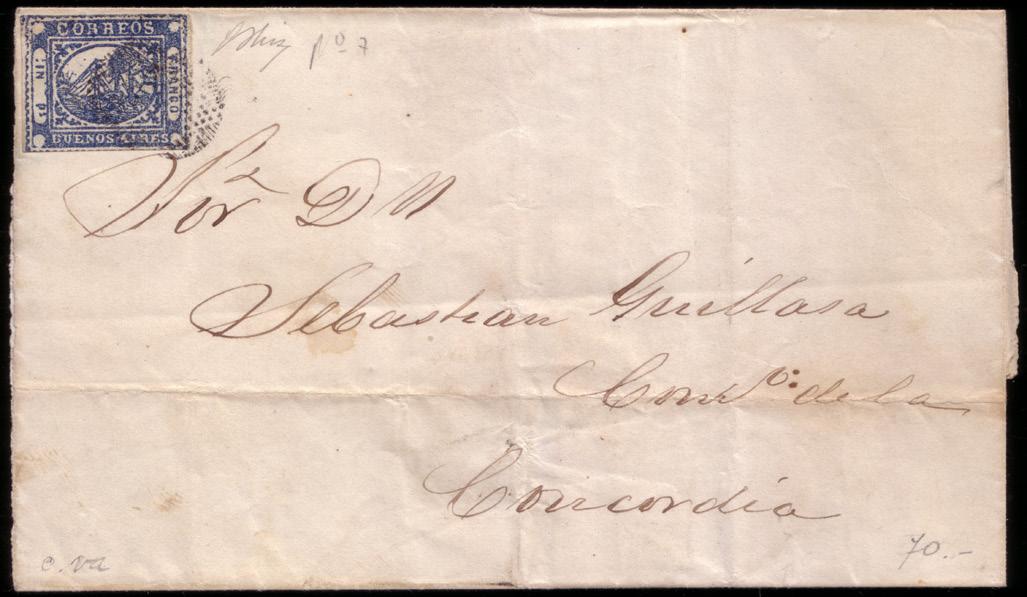 CORREOS
IN: Pˢ
FRANCO
BUENOS AIRES
pº 7
Sor D N
Sebastian Guillasa
Comº: de la
Concordia
70.-